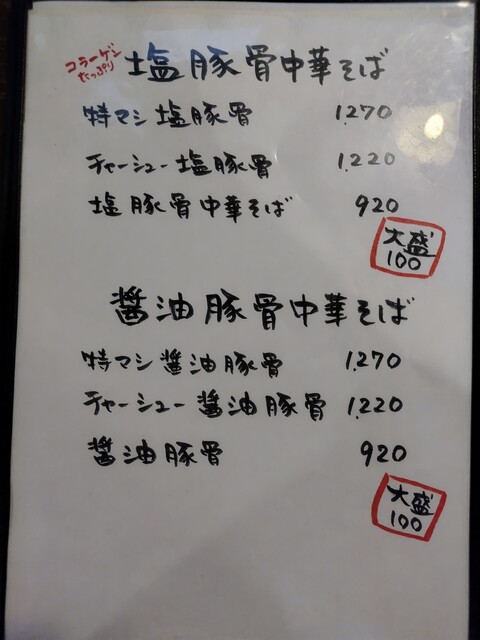 コラーゲン
たっぷり
塩豚骨中華そば
特マシ塩豚骨 1,270
チャーシュー塩豚骨 1,220
塩豚骨中華そば 920
大盛
100
醤油豚骨中華そば
特マシ醤油豚骨 1,270
チャーシュー醤油豚骨 1,220
醤油豚骨 920
大盛
100